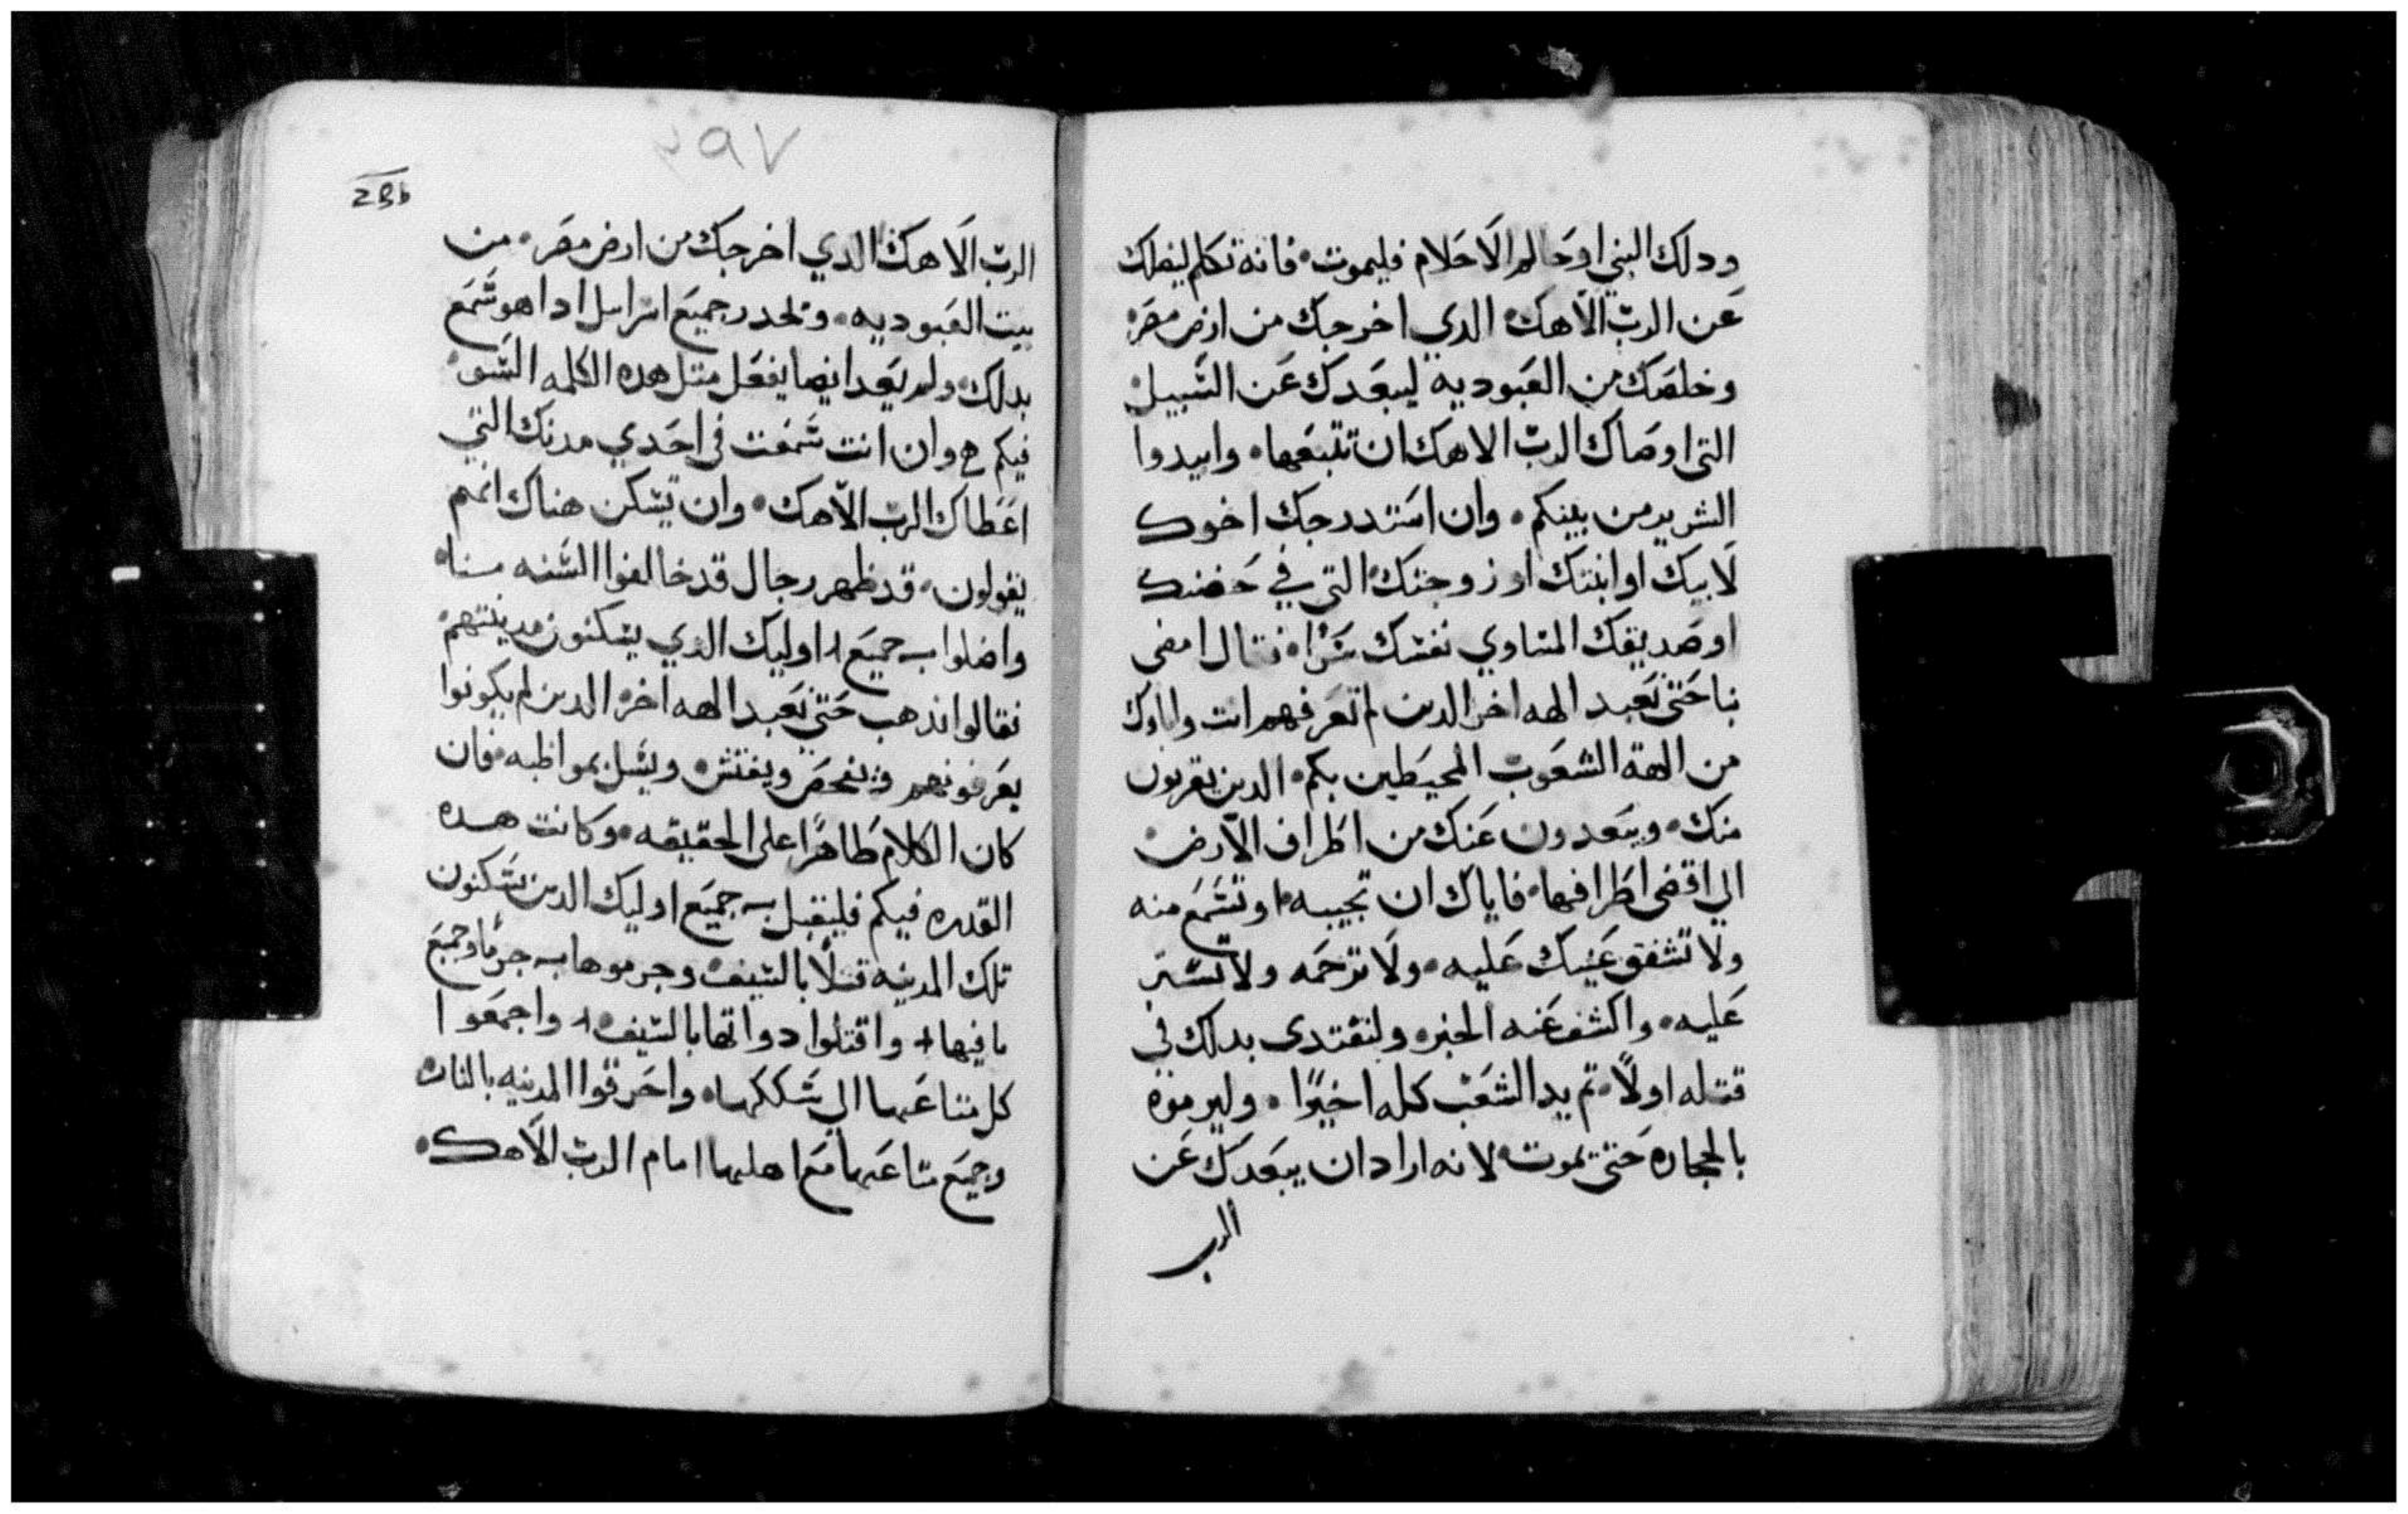 ودلك النبي او حالم الاحلام فليموت فانه تكلم ليضلك
عن الرب الاهك الدي اخرجك من ارض مصر
وخلصك من العبوديه ليبعدك عن السبيل
التي اوصاك الرب الاهك ان تتبعها وابيدوا
الشرير من بينكم وان استدرجك اخوك
لابيك او ابنتك او زوجتك التي في حضنك
او صديقك المساوي نفسك سرا فقال امضي
بنا حتي نعبد الهه اخر الدين لم تعرفهم انت واباوك
من الهة الشعوب المحيطين بكم الدين يقربون
منك ويبعدون عنك من اطراف الارض
الي اقصي اطرافها فاياك ان تجيبه او تسمع منه
ولا تشفق عينيك عليه ولا ترحمه ولا تستر
عليه واكشف عنه الخبر ولتقتدي بدلك في
قتله اولا تم يد الشعب كله اخيرا وليرموه
بالحجاره حتي يموت لانه اراد ان يبعدك عن
الرب
٣٩٧
الرب الاهك الدي اخرجك من ارض مصر من
بيت العبوديه وتحدر جميع اسراييل ادا هو سمع
بدلك ولم يعد ايضا يفعل متل هده الكلمه السو
فيكم وان انت سمعت في احدي مدنك التي
اعطاك الرب الاهك وان تسكن هناك انهم
يقولون قد ظهر رجال قد خالفوا السنه منا
واضلوا جميع اوليك الدي يسكنون مدينتهم
فقالوا ندهب حتي نعبد الهه اخر الدين لم يكونوا
يعرفونهم فيفحص ويفتش ويسل بمواظبه فان
كان الكلام ظاهرا علي الحقيقه وكانت هده
القدره فيكم فليقبل جميع اوليك الدين يسكنون
تلك المدينه قتلا بالسيف وجرموها جرما وجميع
ما فيها واقتلوا دوابها بالسيف واجمعوا
كل متاعها الي سككها واحرقوا المدينه بالنار
وجميع متاعها مع اهلها امام الرب الاهك